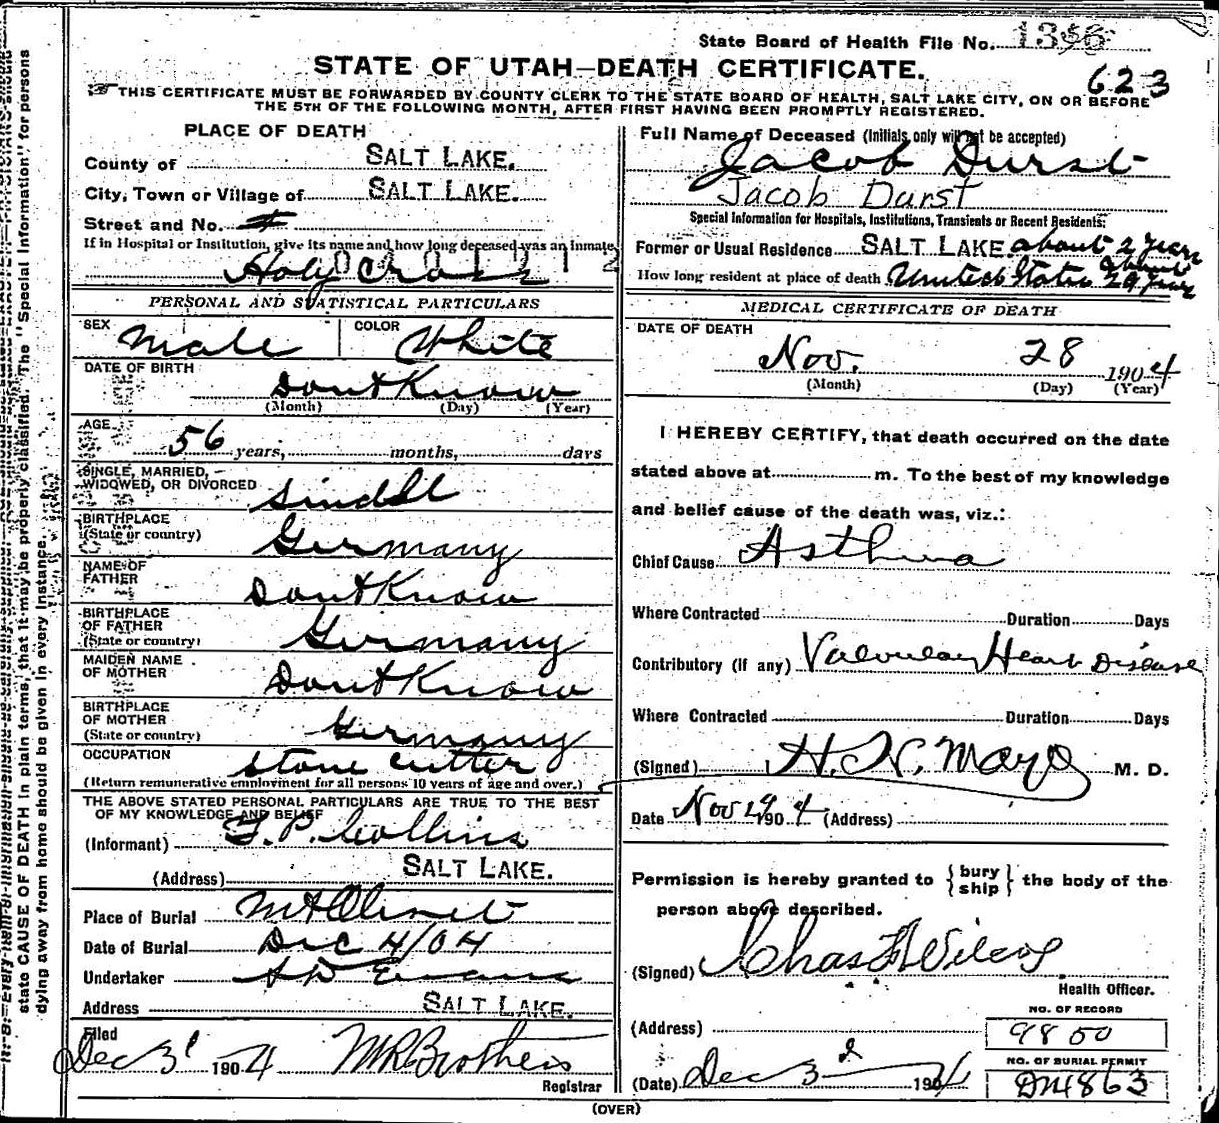 State Board of Health File No. 1356
STATE OF UTAH—DEATH CERTIFICATE.
623
THIS CERTIFICATE MUST BE FORWARDED BY COUNTY CLERK TO THE STATE BOARD OF HEALTH, SALT LAKE CITY, ON OR BEFORE
THE 5TH OF THE FOLLOWING MONTH, AFTER FIRST HAVING BEEN PROMPTLY REGISTERED.
PLACE OF DEATH
County of SALT LAKE.
City, Town or Village of SALT LAKE.
Street and No.
If in Hospital or Institution, give its name and how long deceased was an inmate
Holy Cross
PERSONAL AND STATISTICAL PARTICULARS
SEX Male COLOR White
DATE OF BIRTH Dont Know
(Month) (Day) (Year)
AGE 56 years, months, days
SINGLE, MARRIED,
WIDOWED, OR DIVORCED
BIRTHPLACE
(State or country) Germany
NAME OF
FATHER Dont Know
BIRTHPLACE
OF FATHER
(State or country) Germany
MAIDEN NAME
OF MOTHER Dont Know
BIRTHPLACE
OF MOTHER
(State or country) Germany
OCCUPATION stone cutter
(Return remunerative employment for all persons 10 years of age and over.)
THE ABOVE STATED PERSONAL PARTICULARS ARE TRUE TO THE BEST
OF MY KNOWLEDGE AND BELIEF
(Informant) P. Collins
(Address) SALT LAKE.
Place of Burial Mt Olivet
Date of Burial Dec 4/04
Undertaker Evans
Address SALT LAKE.
Filed
Dec 3 1904 Brothers
Registrar
Full Name of Deceased (Initials only will not be accepted)
Jacob Durst
Jacob Durst
Special Information for Hospitals, Institutions, Transients or Recent Residents:
Former or Usual Residence SALT LAKE. about 2 years
How long resident at place of death United States about 29 years
MEDICAL CERTIFICATE OF DEATH
DATE OF DEATH
Nov. 28 1904
(Month) (Day) (Year)
I HEREBY CERTIFY, that death occurred on the date
stated above at m. To the best of my knowledge
and belief cause of the death was, viz.:
Chief Cause Asthma
Where Contracted Duration Days
Contributory (if any) Valvular Heart Disease
Where Contracted Duration Days
(Signed) H. N. Mayo M. D.
Date Nov 29 1904 (Address)
Permission is hereby granted to {bury
ship} the body of the
person above described.
(Signed) Chas F Wilcox
Health Officer.
(Address)
NO. OF RECORD
9850
NO. OF BURIAL PERMIT
(Date) Dec 3d 1904
(OVER)
state CAUSE OF DEATH in plain terms, that it may be properly classified. The "Special Information" for persons
dying away from home should be given in every instance.